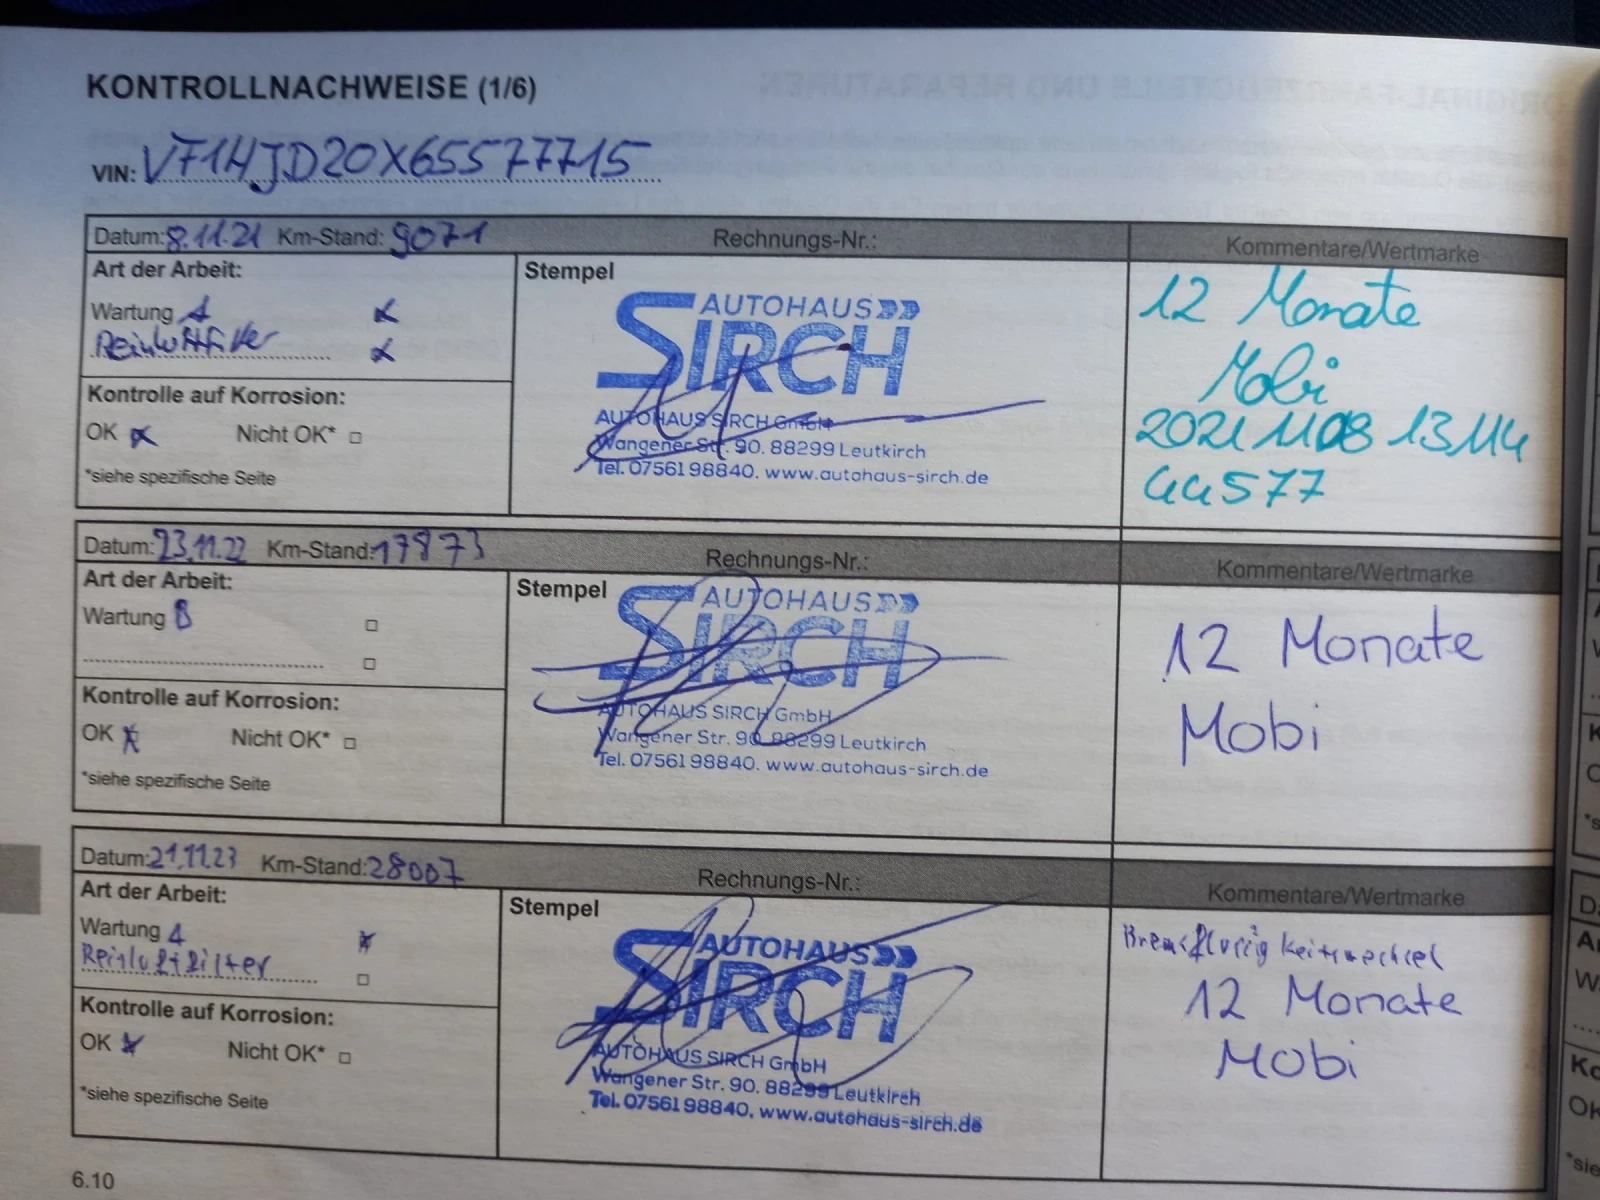 KONTROLLNACHWEISE (1/6)
VIN: VF1HJD20X65577715
Datum: 8.11.21 Km-Stand: 9071 Rechnungs-Nr.: Kommentare/Wertmarke
Art der Arbeit:
Wartung A
Reinluftfilter
Kontrolle auf Korrosion:
OK Nicht OK*
*siehe spezifische Seite
Stempel
AUTOHAUS
SIRCH
AUTOHAUS SIRCH GmbH
Wangener Str. 90. 88299 Leutkirch
Tel. 07561 98840. www.autohaus-sirch.de
12 Monate
Mobi
20211108 13114
44577
Datum: 23.11.22 Km-Stand: 17873 Rechnungs-Nr.: Kommentare/Wertmarke
Art der Arbeit:
Wartung B
Kontrolle auf Korrosion:
OK Nicht OK*
*siehe spezifische Seite
Stempel
AUTOHAUS
SIRCH
AUTOHAUS SIRCH GmbH
Wangener Str. 90. 88299 Leutkirch
Tel. 07561 98840. www.autohaus-sirch.de
12 Monate
Mobi
Datum: 21.11.23 Km-Stand: 28007 Rechnungs-Nr.: Kommentare/Wertmarke
Art der Arbeit:
Wartung A
Reinluftfilter
Kontrolle auf Korrosion:
OK Nicht OK*
*siehe spezifische Seite
Stempel
AUTOHAUS
SIRCH
AUTOHAUS SIRCH GmbH
Wangener Str. 90. 88299 Leutkirch
Tel. 07561 98840. www.autohaus-sirch.de
Bremsflüssigkeitswechsel
12 Monate
Mobi
6.10